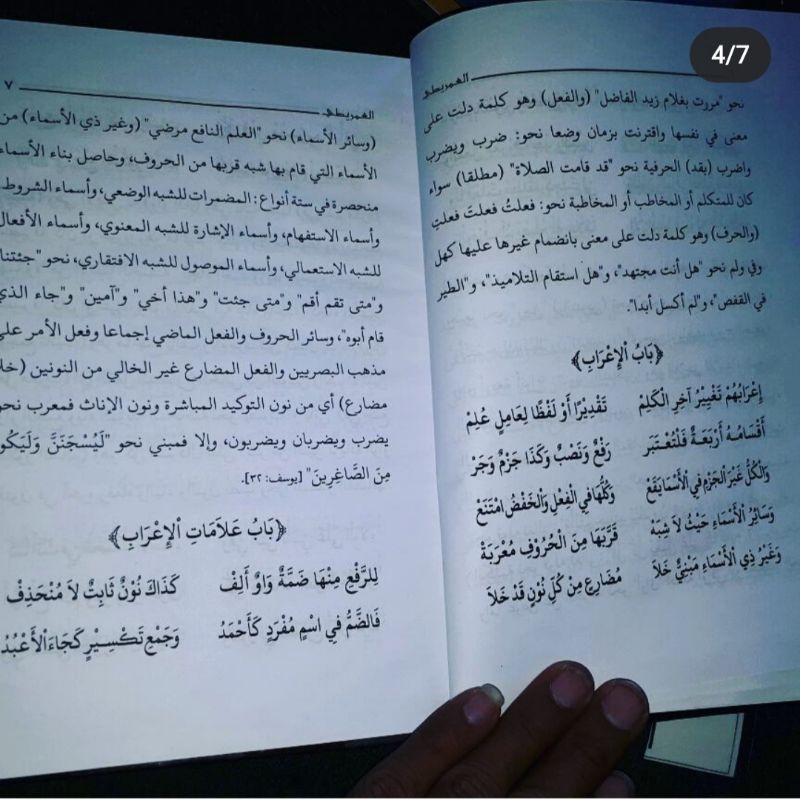 4/7
العمريطي
نحو "مررت بغلام زيد الفاضل" (والفعل) وهو كلمة دلت على
معنى في نفسها واقترنت بزمان وضعا نحو: ضرب ويضرب
واضرب (بقد) الحرفية نحو "قد قامت الصلاة" (مطلقا) سواء
كان للمتكلم أو المخاطب أو المخاطبة نحو: فعلتُ فعلتَ فعلتِ
(والحرف) وهو كلمة دلت على معنى بانضمام غيرها عليها كهل
وفي ولم نحو "هل أنت مجتهد"، و"هل استقام التلاميذ"، و"الطير
في القفص"، و"لم أكسل أبدا".
﴿بَابُ الْإِعْرَابِ﴾
إِعْرَابُهُمْ تَغْيِيْرُ آخِرِ الْكَلِمْ تَقْدِيْرًا أَوْ لَفْظًا لِعَامِلٍ عُلِمْ
أَقْسَامُهُ أَرْبَعَةٌ فَلْتُعْتَبَر رَفْعٌ وَنَصْبٌ وَكَذَا جَزْمٌ وَجَرّ
وَالْكُلُّ غَيْرَ الْجَزْمِ فِي الْأَسْمَا يَقَعْ وَكُلُّهَا فِي الْفِعْلِ وَالْخَفْضُ امْتَنَعْ
وَسَائِرُ الْأَسْمَاءِ حَيْثُ لَا شِبْهَ قَرَّبَهَا مِنَ الْحُرُوْفِ مُعْرَبَةْ
وَغَيْرُ ذِي الْأَسْمَاءِ مَبْنِيٌّ خَلَا مُضَارِعٍ مِنْ كُلِّ نُوْنٍ قَدْ خَلَا
العمريطي ٧
(وسائر الأسماء) نحو "العلم النافع مرضي" (وغير ذي الأسماء) من
الأسماء التي قام بها شبه قربها من الحروف، وحاصل بناء الأسماء
منحصرة في ستة أنواع: المضمرات للشبه الوضعي، وأسماء الشروط
وأسماء الاستفهام، وأسماء الإشارة للشبه المعنوي، وأسماء الأفعال
للشبه الاستعمالي، وأسماء الموصول للشبه الافتقاري، نحو "جئتنا"
و"متى تقم أقم" و"متى جئت" و"هذا أخي" و"آمين" و"جاء الذي
قام أبوه"، وسائر الحروف والفعل الماضي إجماعا وفعل الأمر على
مذهب البصريين والفعل المضارع غير الخالي من النونين (خلا
مضارع) أي من نون التوكيد المباشرة ونون الإناث فمعرب نحو
يضرب ويضربان ويضربون، وإلا فمبني نحو "لَيُسْجَنَنَّ وَلَيَكُو
مِنَ الصَّاغِرِينَ" [يوسف: ٣٢].
﴿بَابُ عَلَامَاتِ الْإِعْرَابِ﴾
لِلرَّفْعِ مِنْهَا ضَمَّةٌ وَاوٌ أَلِفْ كَذَاكَ نُوْنٌ ثَابِتٌ لَا مُنْحَذِفْ
فَالضَّمُّ فِي اسْمٍ مُفْرَدٍ كَأَحْمَدُ وَجَمْعِ تَكْسِيْرٍ كَجَاءَ الْأَعْبُدُ